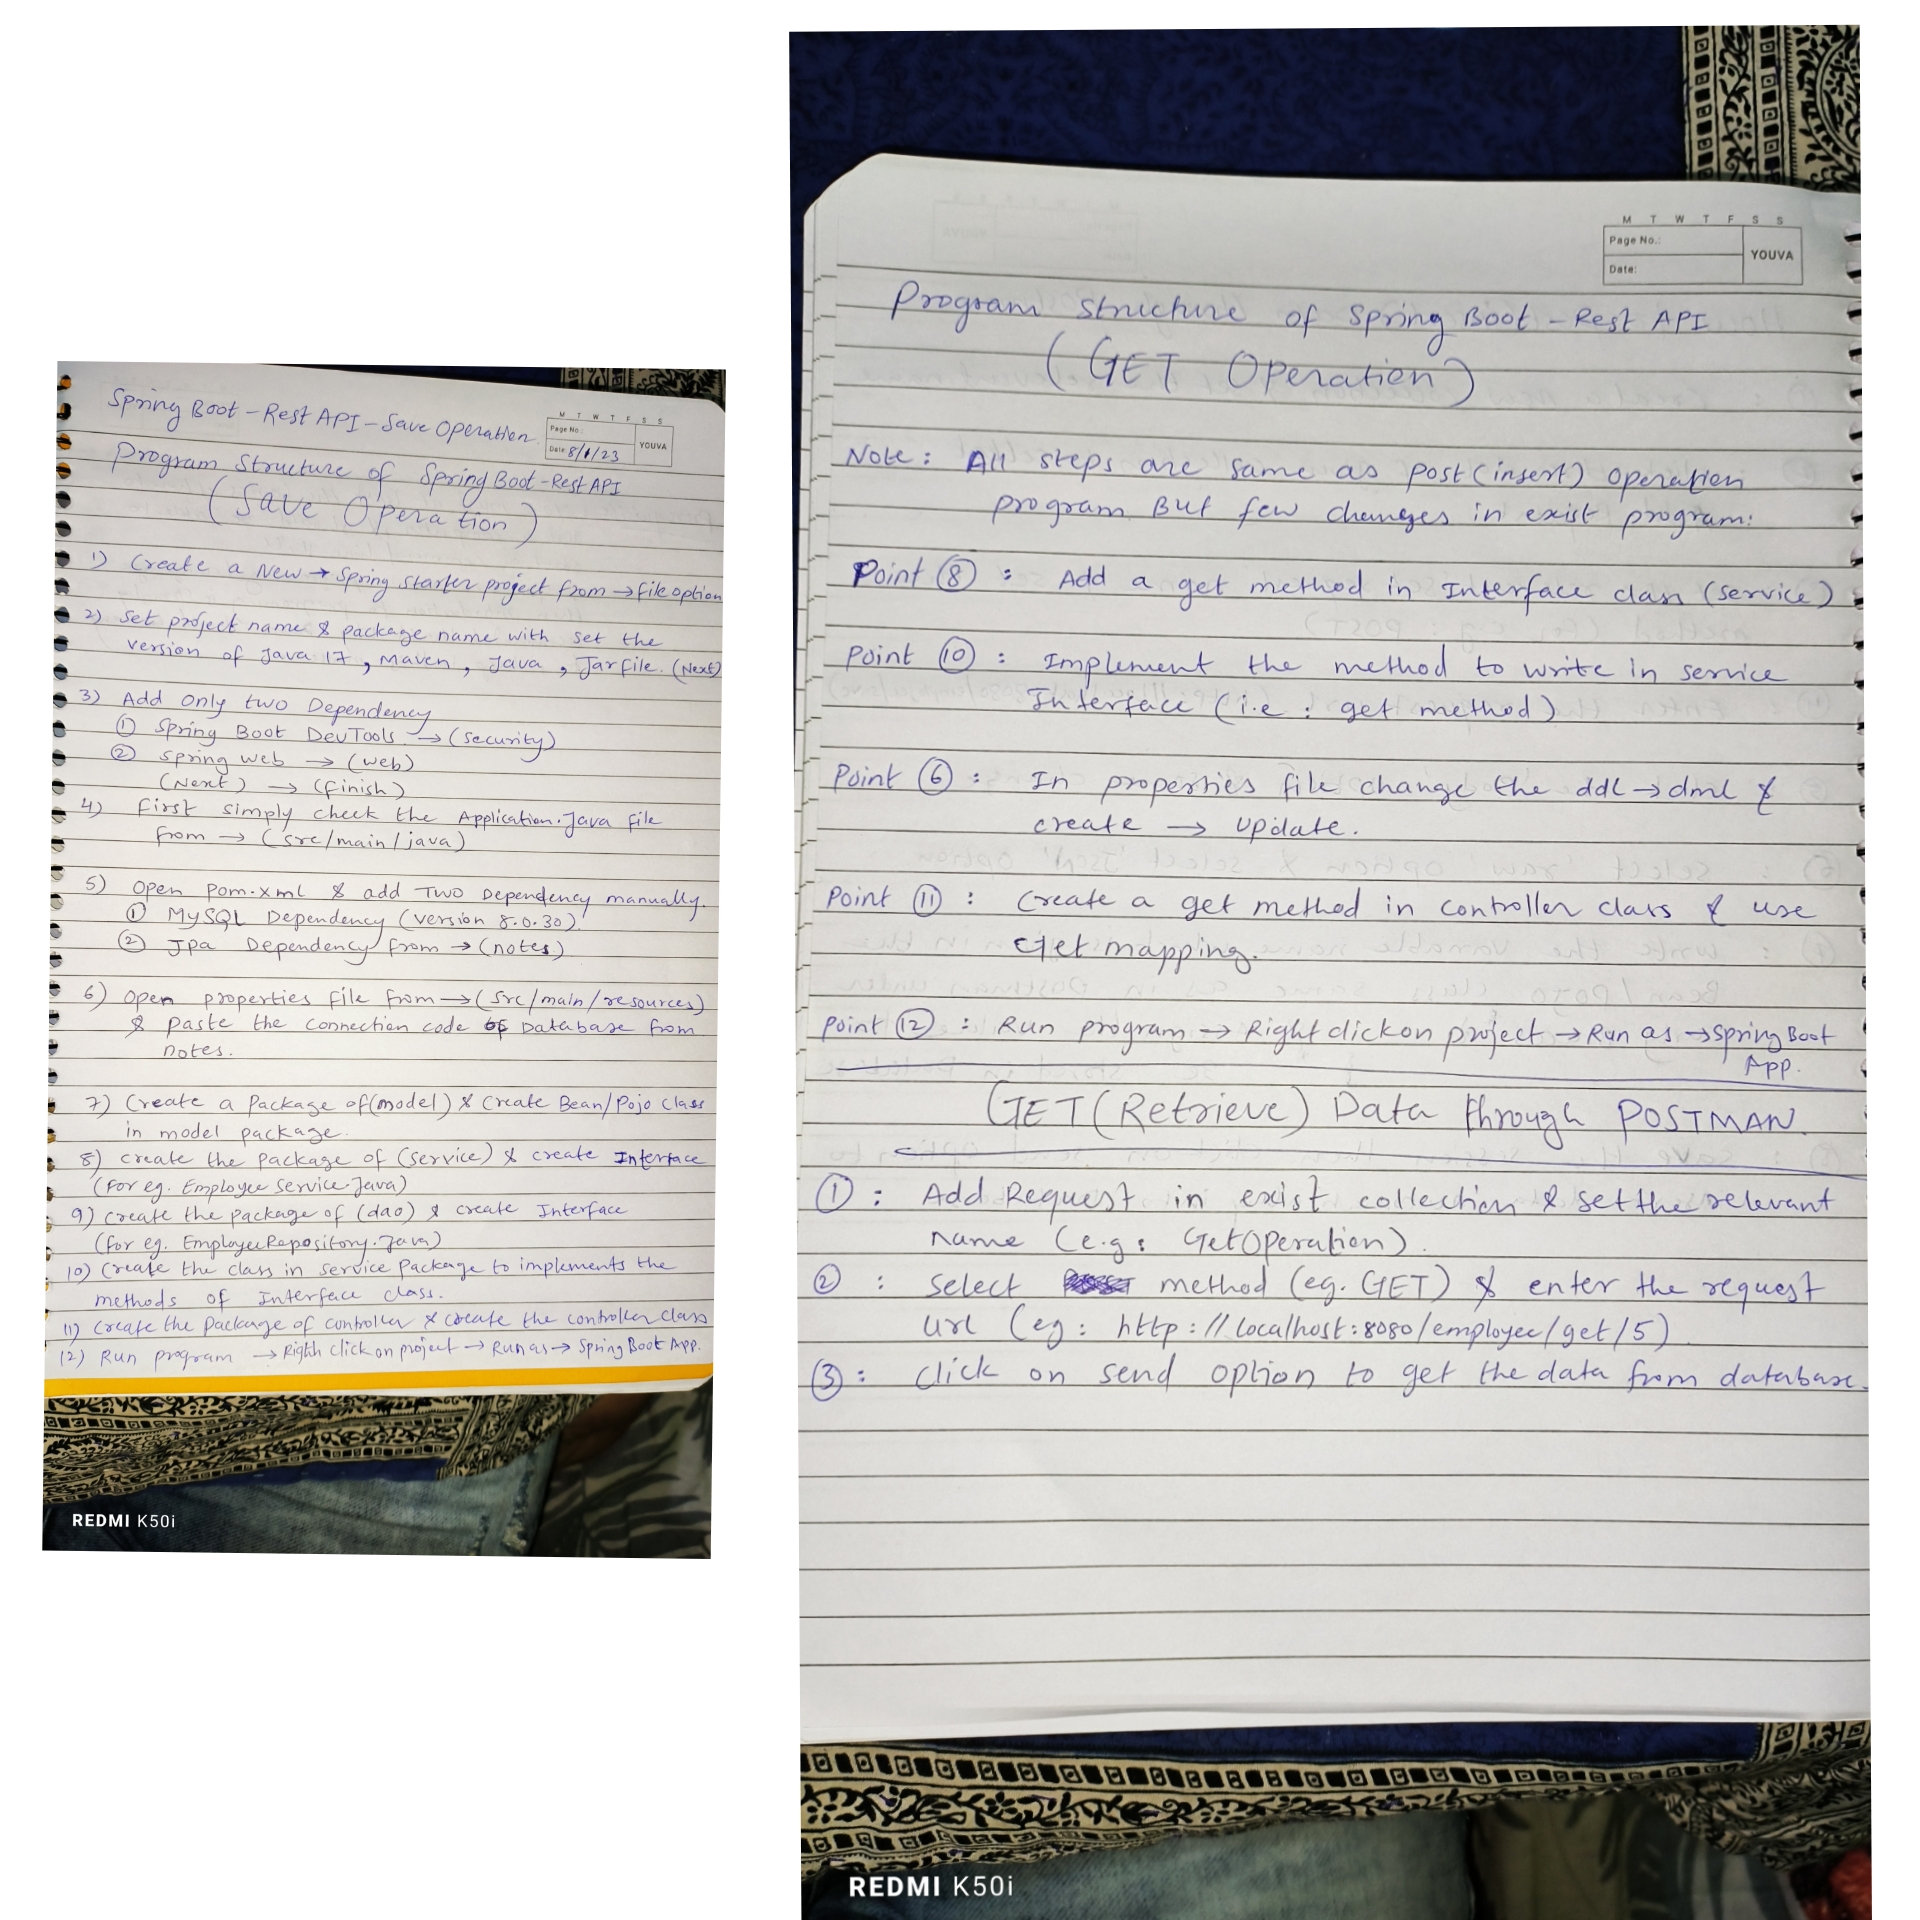 Spring Boot - Rest API - Save Operation.
M T W T F S S
Page No.:
Date: 8/1/23
YOUVA
Program Structure of Spring Boot - Rest API
(Save Operation)
1) Create a New → Spring starter project from → file option
2) Set project name & package name with set the
version of Java 17, Maven, Java, Jar file. (Next)
3) Add only two Dependency
① Spring Boot DevTools → (security)
② Spring web → (web)
(Next) → (finish)
4) First simply check the Application.Java file
from → (src/main/java)
5) Open pom.xml & add Two Dependency manually.
① MySQL Dependency (version 8.0.30)
② Jpa Dependency from → (notes)
6) Open properties file from → (src/main/resources)
& paste the connection code of Database from
notes.
7) Create a Package of (model) & Create Bean/Pojo class
in model package.
8) create the package of (service) & create Interface
(For eg. Employee Service.Java)
9) create the package of (dao) & create Interface
(for eg. EmployeeRepository.Java)
10) Create the class in service package to implements the
methods of Interface class.
11) create the package of controller & create the controller class
12) Run program → Righth click on project → Run as → Spring Boot App.
REDMI K50i
M T W T F S S
Page No.:
Date:
YOUVA
Program structure of Spring Boot - Rest API
(GET Operation)
Note: All steps are same as post (insert) operation
program But few changes in exist program:
Point ⑧ : Add a get method in Interface class (service)
Point ⑩ : Implement the method to write in service
Interface (i.e : get method)
Point ⑥ : In properties file change the ddl → dml &
create → update.
Point ⑪ : Create a get method in controller class & use
Get mapping.
Point ⑫ : Run program → Right click on project → Run as → Spring Boot
App.
GET (Retrieve) Data through POSTMAN.
① : Add Request in exist collection & set the relevant
name (e.g: GetOperation).
② : Select method (eg. GET) & enter the request
url (eg: http://localhost:8080/employee/get/5)
③ : click on send option to get the data from database.
REDMI K50i